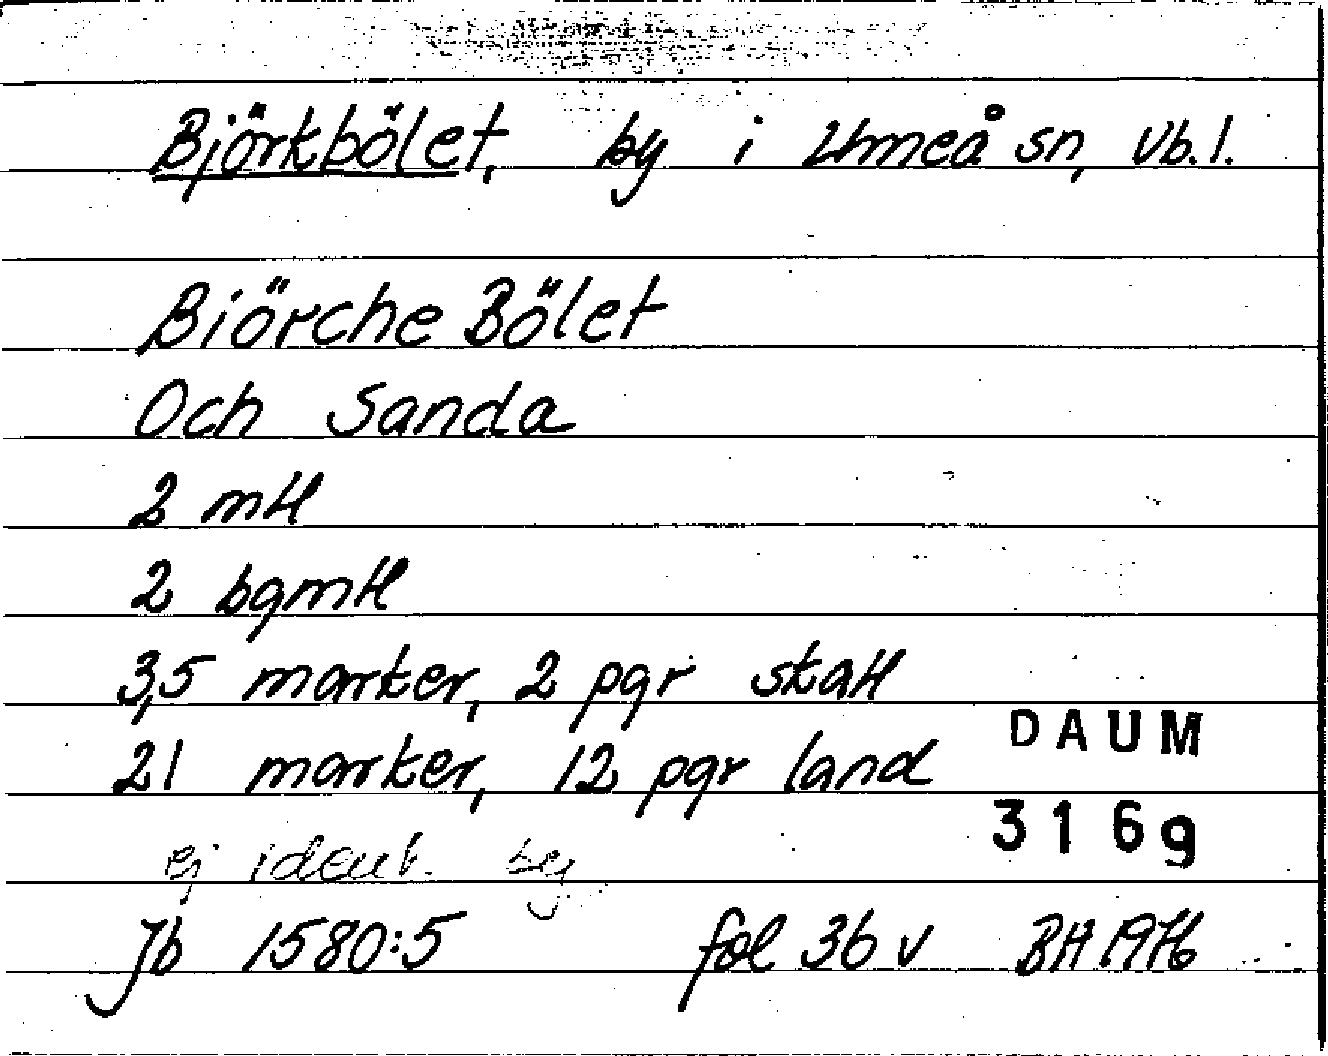 Björkbölet, by i Umeå sn, Vb.l.
Biörche Bölet
Och Sanda
2 mtl
2 bgmtl
3,5 marker, 2 pgr skatt
21 marker, 12 pgr land
DAUM
316g
ej ident. by
Jb 1580:5 fol 36 v BH 1976